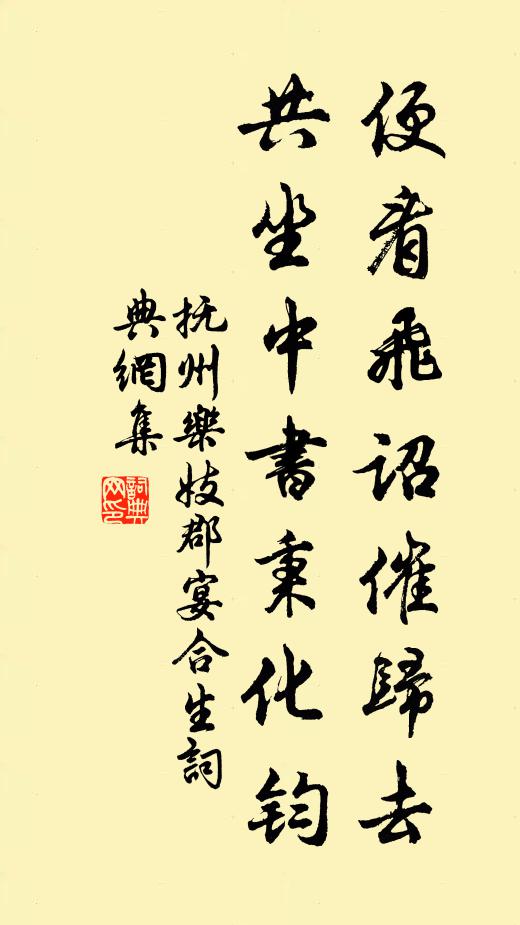 便看飛詔催歸去
共坐中書秉化鈞
抚州樂妓郡宴合生詞
典網集
詞典網印